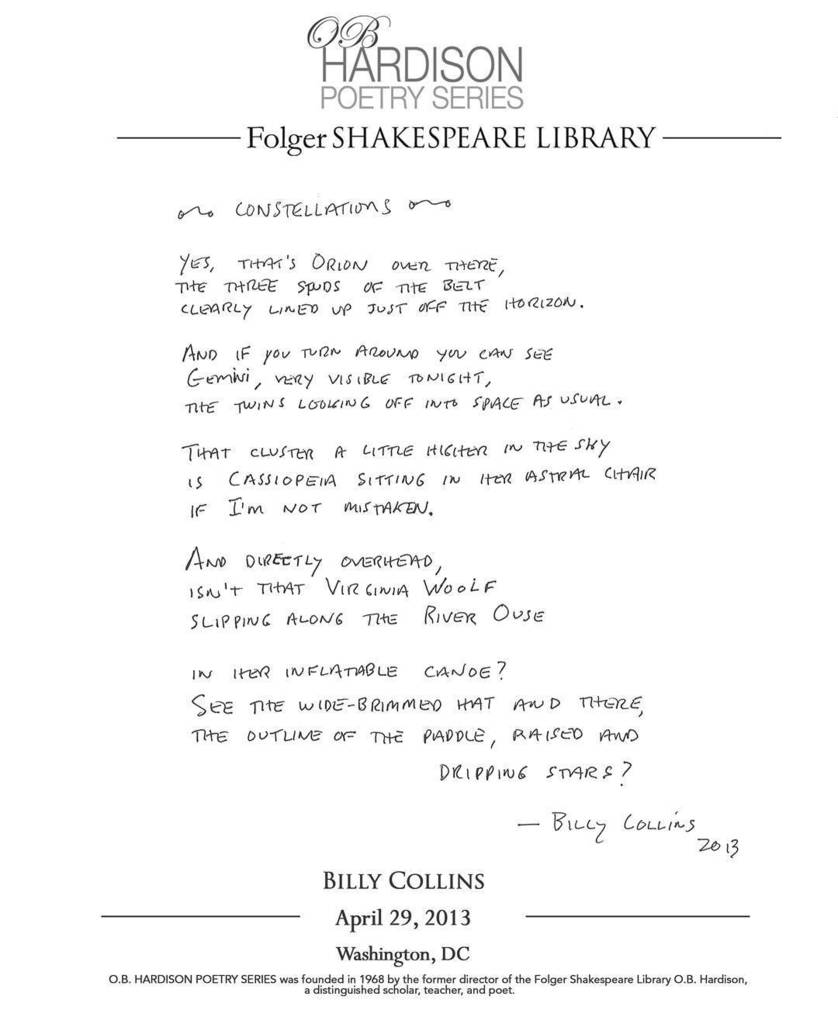 OB
HARDISON
POETRY SERIES
Folger SHAKESPEARE LIBRARY
CONSTELLATIONS
YES, THAT'S ORION OVER THERE,
THE THREE STUDS OF THE BELT
CLEARLY LINED UP JUST OFF THE HORIZON.
AND IF YOU TURN AROUND YOU CAN SEE
GEMINI, VERY VISIBLE TONIGHT,
THE TWINS LOOKING OFF INTO SPACE AS USUAL.
THAT CLUSTER A LITTLE HIGHER IN THE SKY
IS CASSIOPEIA SITTING IN HER ASTRAL CHAIR
IF I'M NOT MISTAKEN.
AND DIRECTLY OVERHEAD,
ISN'T THAT VIRGINIA WOOLF
SLIPPING ALONG THE RIVER OUSE
IN HER INFLATABLE CANOE?
SEE THE WIDE-BRIMMED HAT AND THERE,
THE OUTLINE OF THE PADDLE, RAISED AND
DRIPPING STARS?
— BILLY COLLINS
2013
BILLY COLLINS
April 29, 2013
Washington, DC
O.B. HARDISON POETRY SERIES was founded in 1968 by the former director of the Folger Shakespeare Library O.B. Hardison,
a distinguished scholar, teacher, and poet.